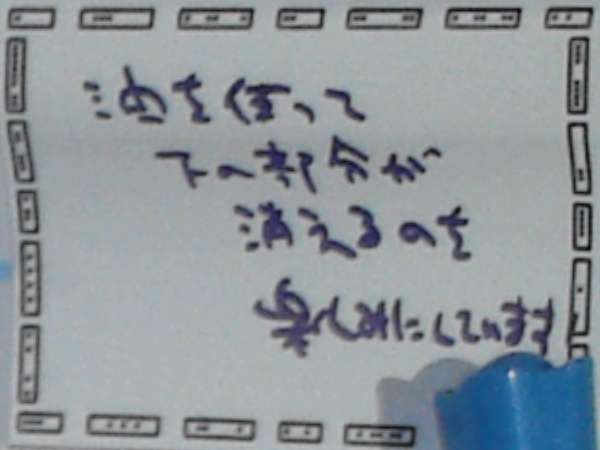 油を使って
下の部分が
消えるのを
楽しみにしています